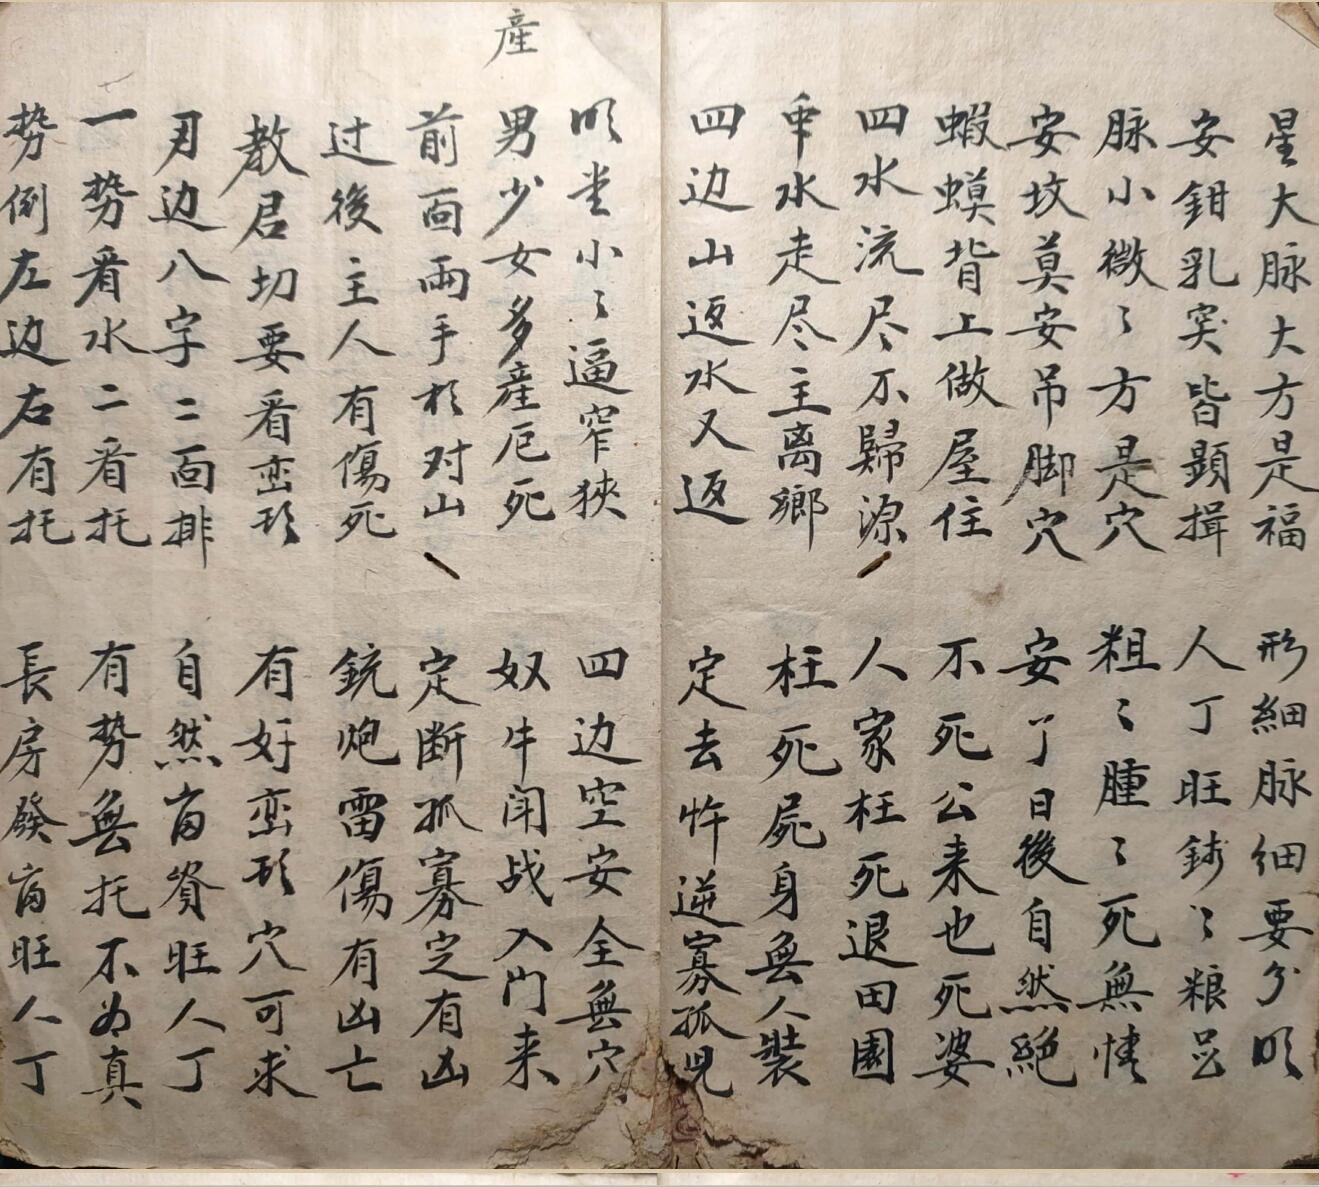 星大脉大方是福 形细脉细要分明
安鉗乳突皆顕揖 人丁旺 粮
脉小微〻方是穴 粗〻腫〻死無情
安坟莫安吊脚穴 安了日後自然絕
蝦蟆背上做屋住 不死公来也死婆
四水流尽不歸源 人家枉死退田園
水走尽主离鄉 枉死屍身無人裝
四边山返水又返 定去忤逆寡孤児
明堂小〻逼窄狹 四边空安全無穴
産
男少女多産厄死 奴牛闹战入门来
前面兩手 对山 定断孤寡定有凶
过後主人有傷死 銃炮雷傷有凶亡
教君切要看峦形 有好峦形穴可求
边八字二面排 自然畜資旺人丁
一势看水二看托 有势無托不为真
势倒左边右有托 長房發畜旺人丁